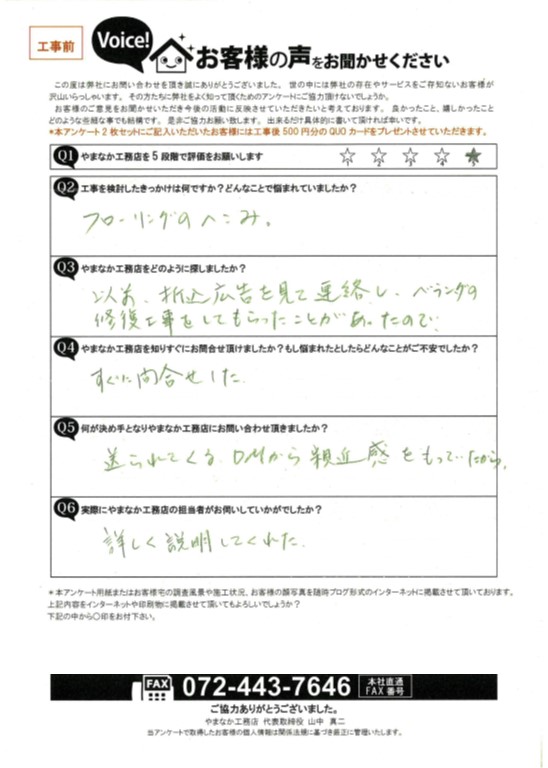 工事前
Voice!
お客様の声をお聞かせください
この度は弊社にお問い合わせを頂き誠にありがとうございました。世の中には弊社の存在やサービスをご存知ないお客様が
沢山いらっしゃいます。その方たちに弊社をよく知って頂くためのアンケートにご協力頂けないでしょうか。
お客様のご意見をお聞かせいただき今後の活動に反映させていただきたいと考えております。良かったこと、嬉しかったこと
どのような些細な事でも結構です。是非ご協力お願い致します。出来るだけ具体的に書いて頂ければ幸いです。
*本アンケート2枚セットにご記入いただいたお客様には工事後500円分のQUOカードをプレゼントさせていただきます。
Q1 やまなか工務店を5段階で評価をお願いします ☆ ☆ ☆ ☆ ★
1 2 3 4 5
Q2 工事を検討したきっかけは何ですか?どんなことで悩まれていましたか?
フローリングのへこみ。
Q3 やまなか工務店をどのように探しましたか?
以前、折込広告を見て連絡し、ベランダの
修復工事をしてもらったことがあったので
Q4 やまなか工務店を知りすぐにお問合せ頂けましたか?もし悩まれたとしたらどんなことがご不安でしたか?
すぐに問合せした.
Q5 何が決め手となりやまなか工務店にお問い合わせ頂きましたか?
送られてくるDMから親近感をもっていたから。
Q6 実際にやまなか工務店の担当者がお伺いしていかがでしたか?
詳しく説明してくれた.
*本アンケート用紙またはお客様宅の調査風景や施工状況、お客様の顔写真を随時ブログ形式のインターネットに掲載させて頂いております。
上記内容をインターネットや印刷物に掲載させて頂いてもよろしいでしょうか?
下記の中から○印をお付下さい。
FAX 072-443-7646 本社直通
FAX番号
ご協力ありがとうございました。
やまなか工務店 代表取締役 山中 真二
当アンケートで取得したお客様の個人情報は関係法規に基づき厳正に管理いたします。